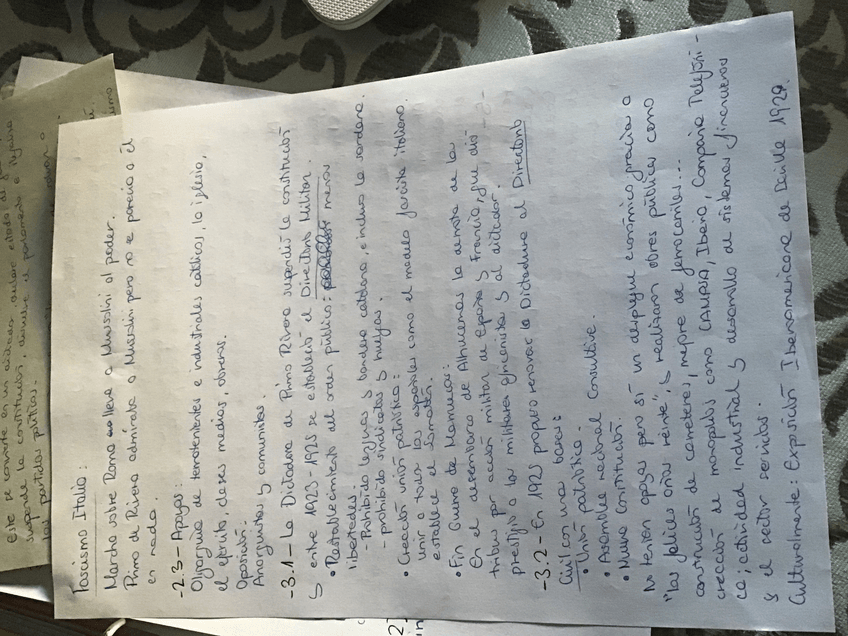 este se convierte en un dictador
suspende la constitución, disuelve el parlamento
los partidos políticos.
Fascismo Italia:
Marcha sobre Roma lleva a Mussolini al poder.
Primo de Rivera admiraba a Mussolini pero no se parecía a él
en nada.
-2.3- Apoyos:
Oligarquía de terratenientes e industriales católicos, la iglesia,
el ejército, clases medias, obreros.
Oposición:
Anarquistas y comunistas.
-3.1- La Dictadura de Primo Rivera suspendió la constitución
y entre 1923-1925 se estableció el Directorio Militar.
• Restablecimiento del orden público: menos
libertades.
- Prohibido lengua y bandera catalana, e incluso la sardana.
- prohibido sindicatos y huelgas.
• Creación unión patriótica:
unir a todos los españoles como el modelo fascista italiano.
establece el somatén.
• Fin Guerra de Marruecos:
En el desembarco de Alhucemas la derrota de las
tribus por acción militar de España y Francia, que dio
prestigio a los militares africanistas y al dictador.
-3.2- En 1925 propuso renovar la Dictadura al Directorio
Civil con unas bases:
• Unión patriótica.
• Asamblea nacional Consultiva.
• Nueva Constitución.
No tenían apoyos pero sí un despegue económico gracias a
"los felices años veinte", y realizaron obras públicas como
construcción de carreteras, mejora de ferrocarriles...
creación de monopolios como CAMPSA, Iberia, Compañía Telefóni-
ca, actividad industrial y desarrollo de sistemas financieros
y el sector servicios.
Culturalmente: Exposición Iberoamericana de Sevilla 1929.